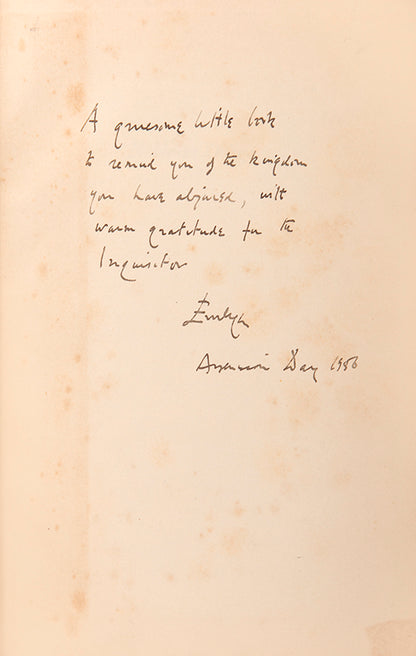 A gruesome little book
to remind you of the kingdom
you have abjured, with
warm gratitude for the
Inquisitor
Evelyn
Ascension Day 1956